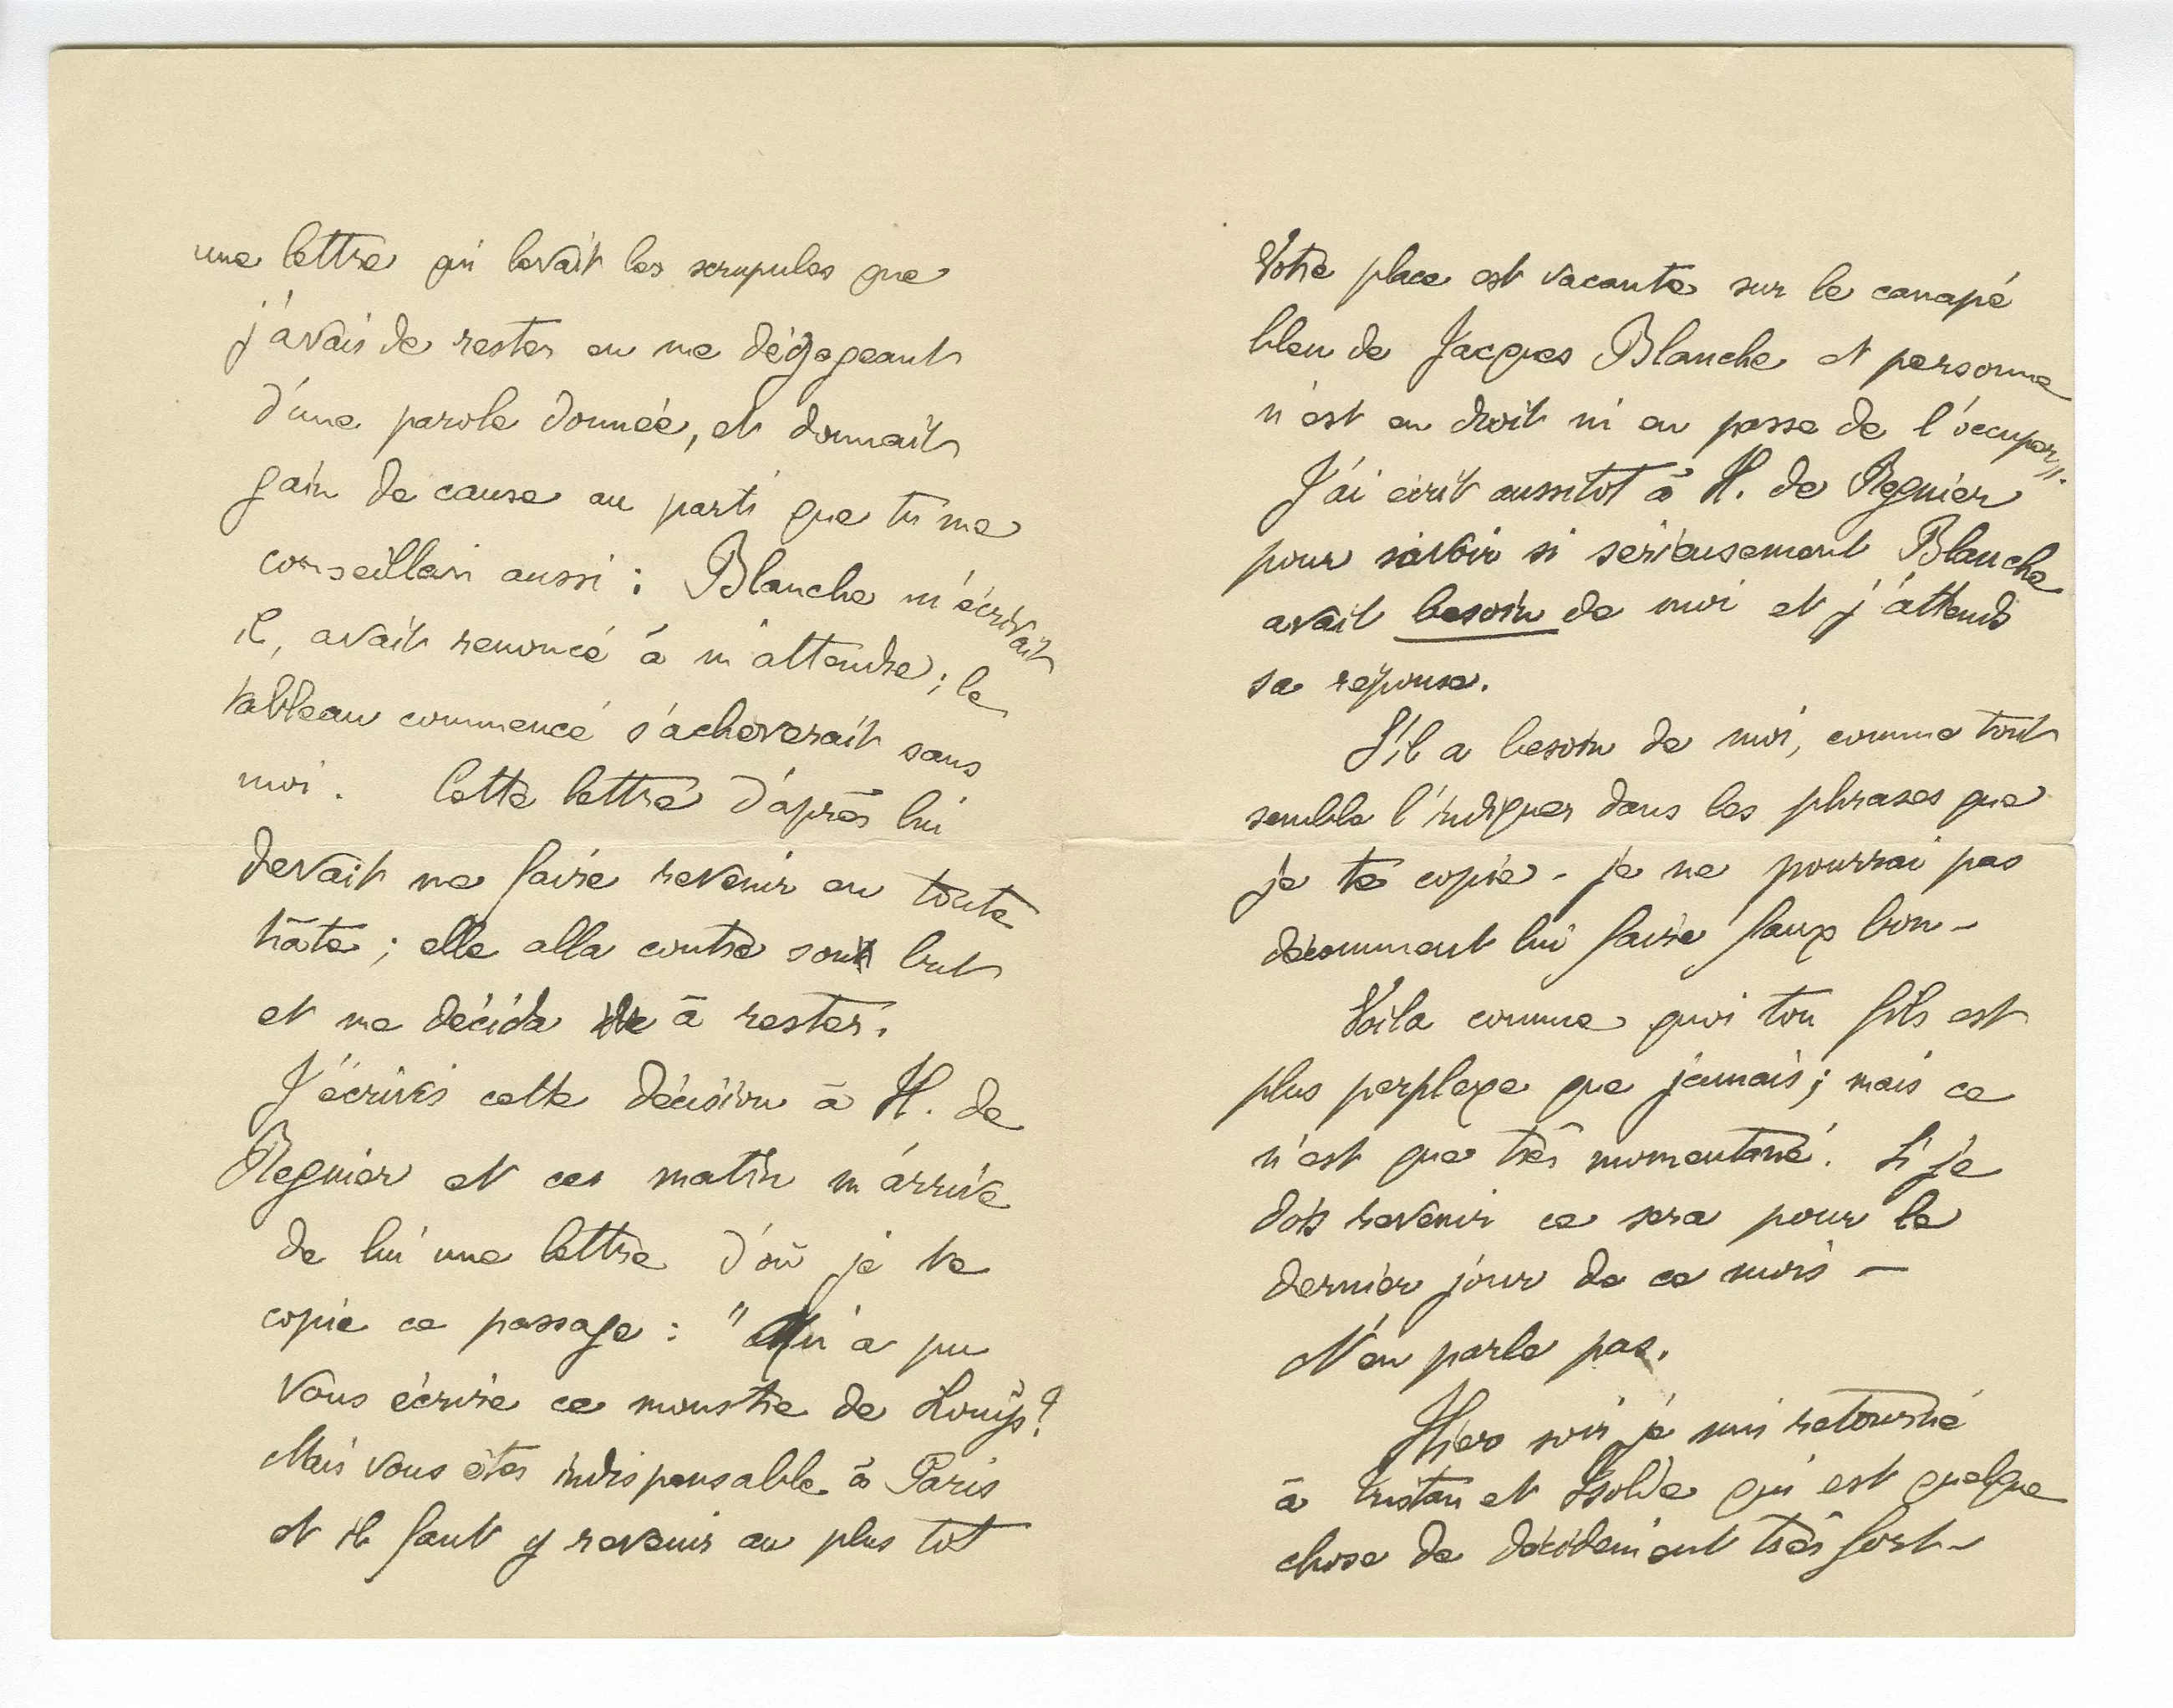 une lettre qui levait les scrupules que
j'avais de rester en me dégageant
d'une parole donnée, et donnait
gain de cause au parti que tu me
conseillais aussi : Blanche m'écrivait
il, avait renoncé à m'attendre ; le
tableau commencé s'achèverait sans
moi. Cette lettre d'après lui
devait me faire revenir en toute
hâte ; elle alla contre son but
et me décida à rester.
J'écrivis cette décision à H. de
Regnier et ce matin m'arrive
de lui une lettre d'où je te
copie ce passage : "Qui a pu
vous écrire ce monstre de Louÿs?
Mais vous êtes indispensable à Paris
et il faut y revenir au plus tôt
Votre place est vacante sur le canapé
bleu de Jacques Blanche et personne
n'est en droit ni en passe de l'occuper".
J'ai écrit aussitôt à H. de Regnier
pour savoir si sérieusement Blanche
avait besoin de moi et j'attends
sa réponse.
S'il a besoin de moi, comme tout
semble l'indiquer dans les phrases que
je te copie - je ne pourrai pas
décemment lui faire faux bon -
Voila comme quoi ton fils est
plus perplexe que jamais ; mais ce
n'est que très momentané. Si je
dois revenir ce sera pour le
dernier jour de ce mois —
N'en parle pas.
Hier soir je suis retourné
à Tristan et Isolde qui est quelque
chose de décidément très fort -